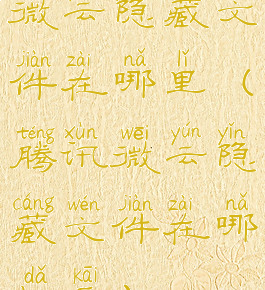 微云隐藏文
jiàn zài nǎ lǐ
件在哪里（
téng xùn wēi yún yǐn
腾讯微云隐
cáng wén jiàn zài nǎ
藏文件在哪
dǎ kāi